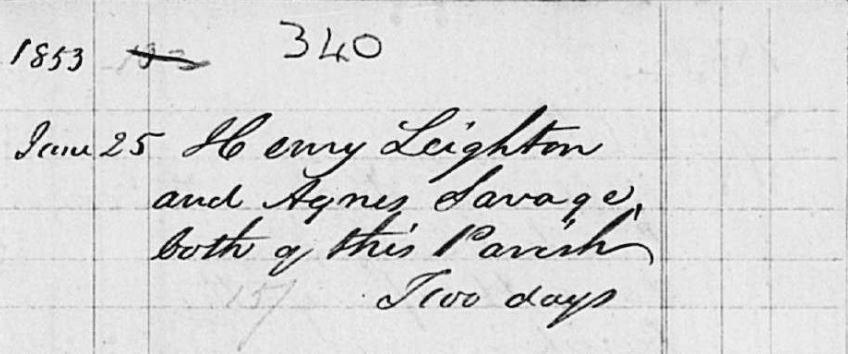 340
1853
June 25 Henry Leighton
and Agnes Savage,
both of this Parish
Two days